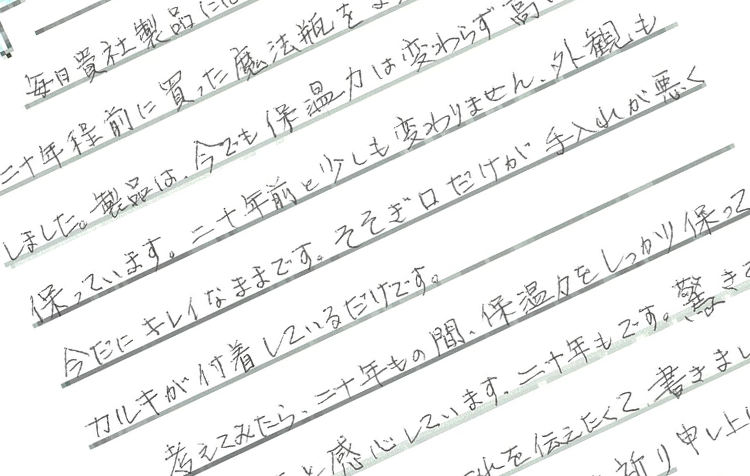 毎日貴社製品に
二十年程前に買った魔法瓶を
しました。製品は、今でも保温力は変わらず高
保っています。二十年前と少しも変わりません、外観も
今だにキレイなままです。そそぎ口だけが手入れが悪く
カルキが付着しているだけです。
考えてみたら、二十年もの間、保温力をしっかり保って
と感心しています。二十年もです。驚きで
れを伝えたくて、書きまし
祈り申し上